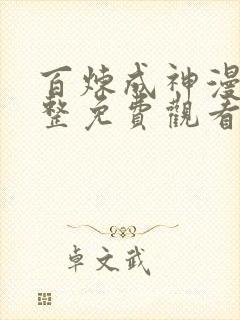 百炼成神漫
整免費觀看
卓文武